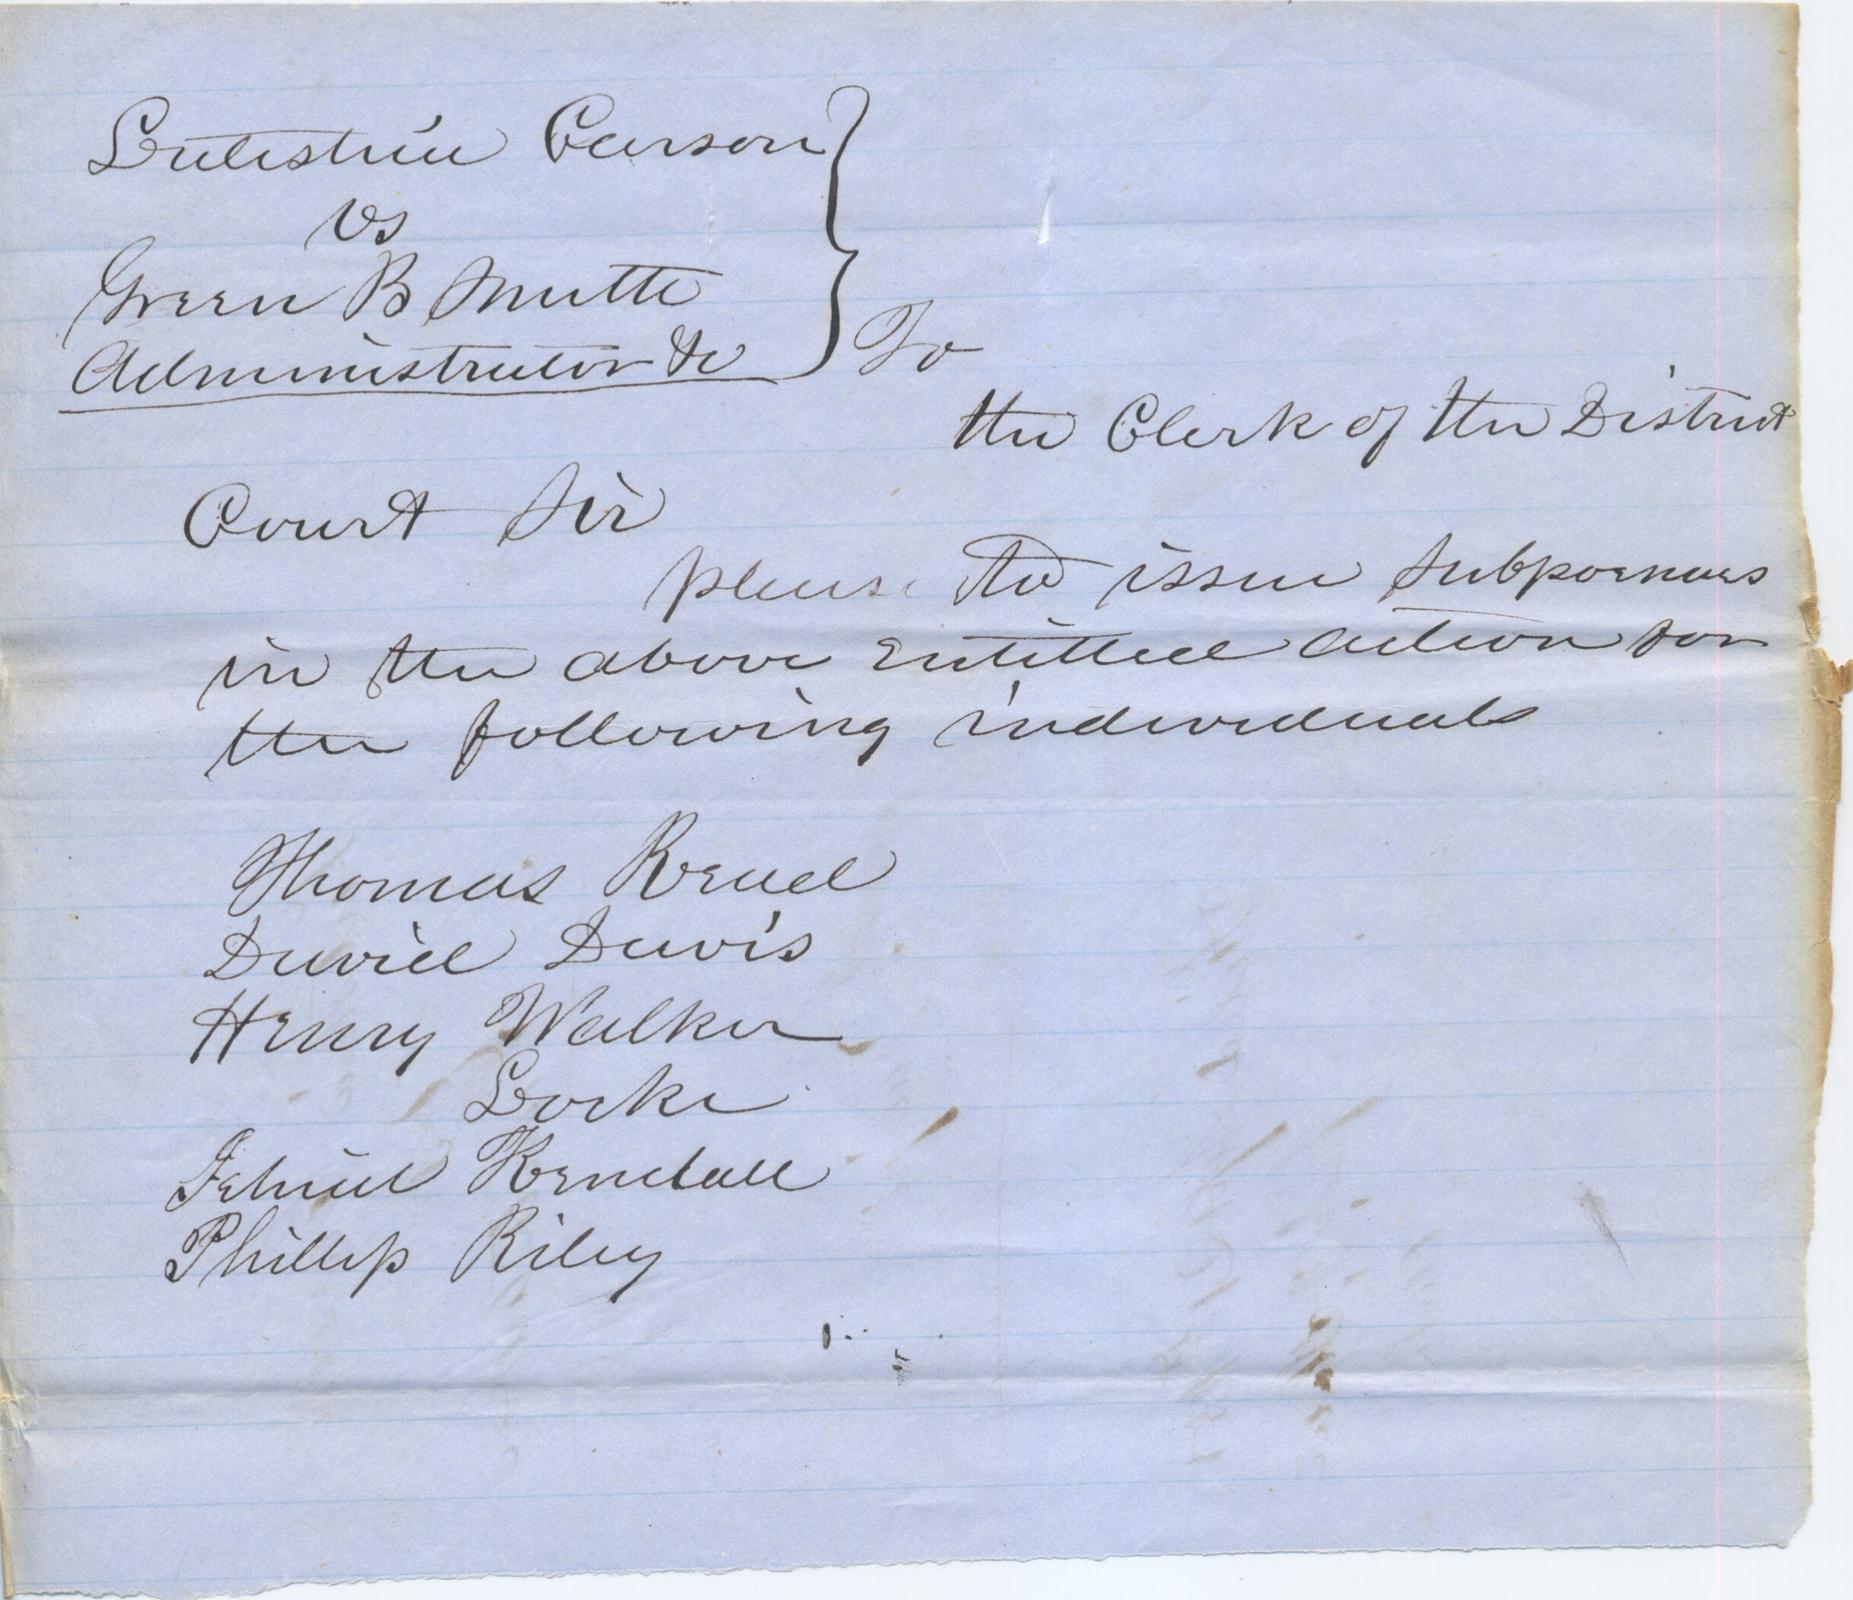 Lutishia Carson
vs
Green B Smith
Administrator &c
To
the Clerk of the District
Court Sir
please to issue Subpoenaes
in the above Entitled action for
the following individuals
Thomas Read
David Davis
Henry Walker
Locke
Jehial Kendall
Phillip Riley